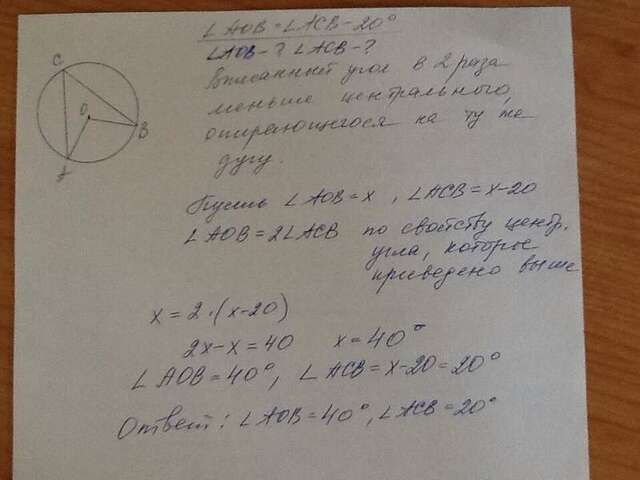 ∠AOB = ∠ACB - 20°
∠AOB - ? ∠ACB - ?
Вписанный угол в 2 раза
меньше центрального,
опирающегося на ту же
дугу.
C
O
B
A
Пусть ∠AOB = x , ∠ACB = x-20
∠AOB = 2∠ACB по свойству центр.
угла, которые
приведено выше
x = 2·(x-20)
2x-x = 40 x = 40°
∠AOB = 40°, ∠ACB = x-20 = 20°
Ответ: ∠AOB = 40°, ∠ACB = 20°